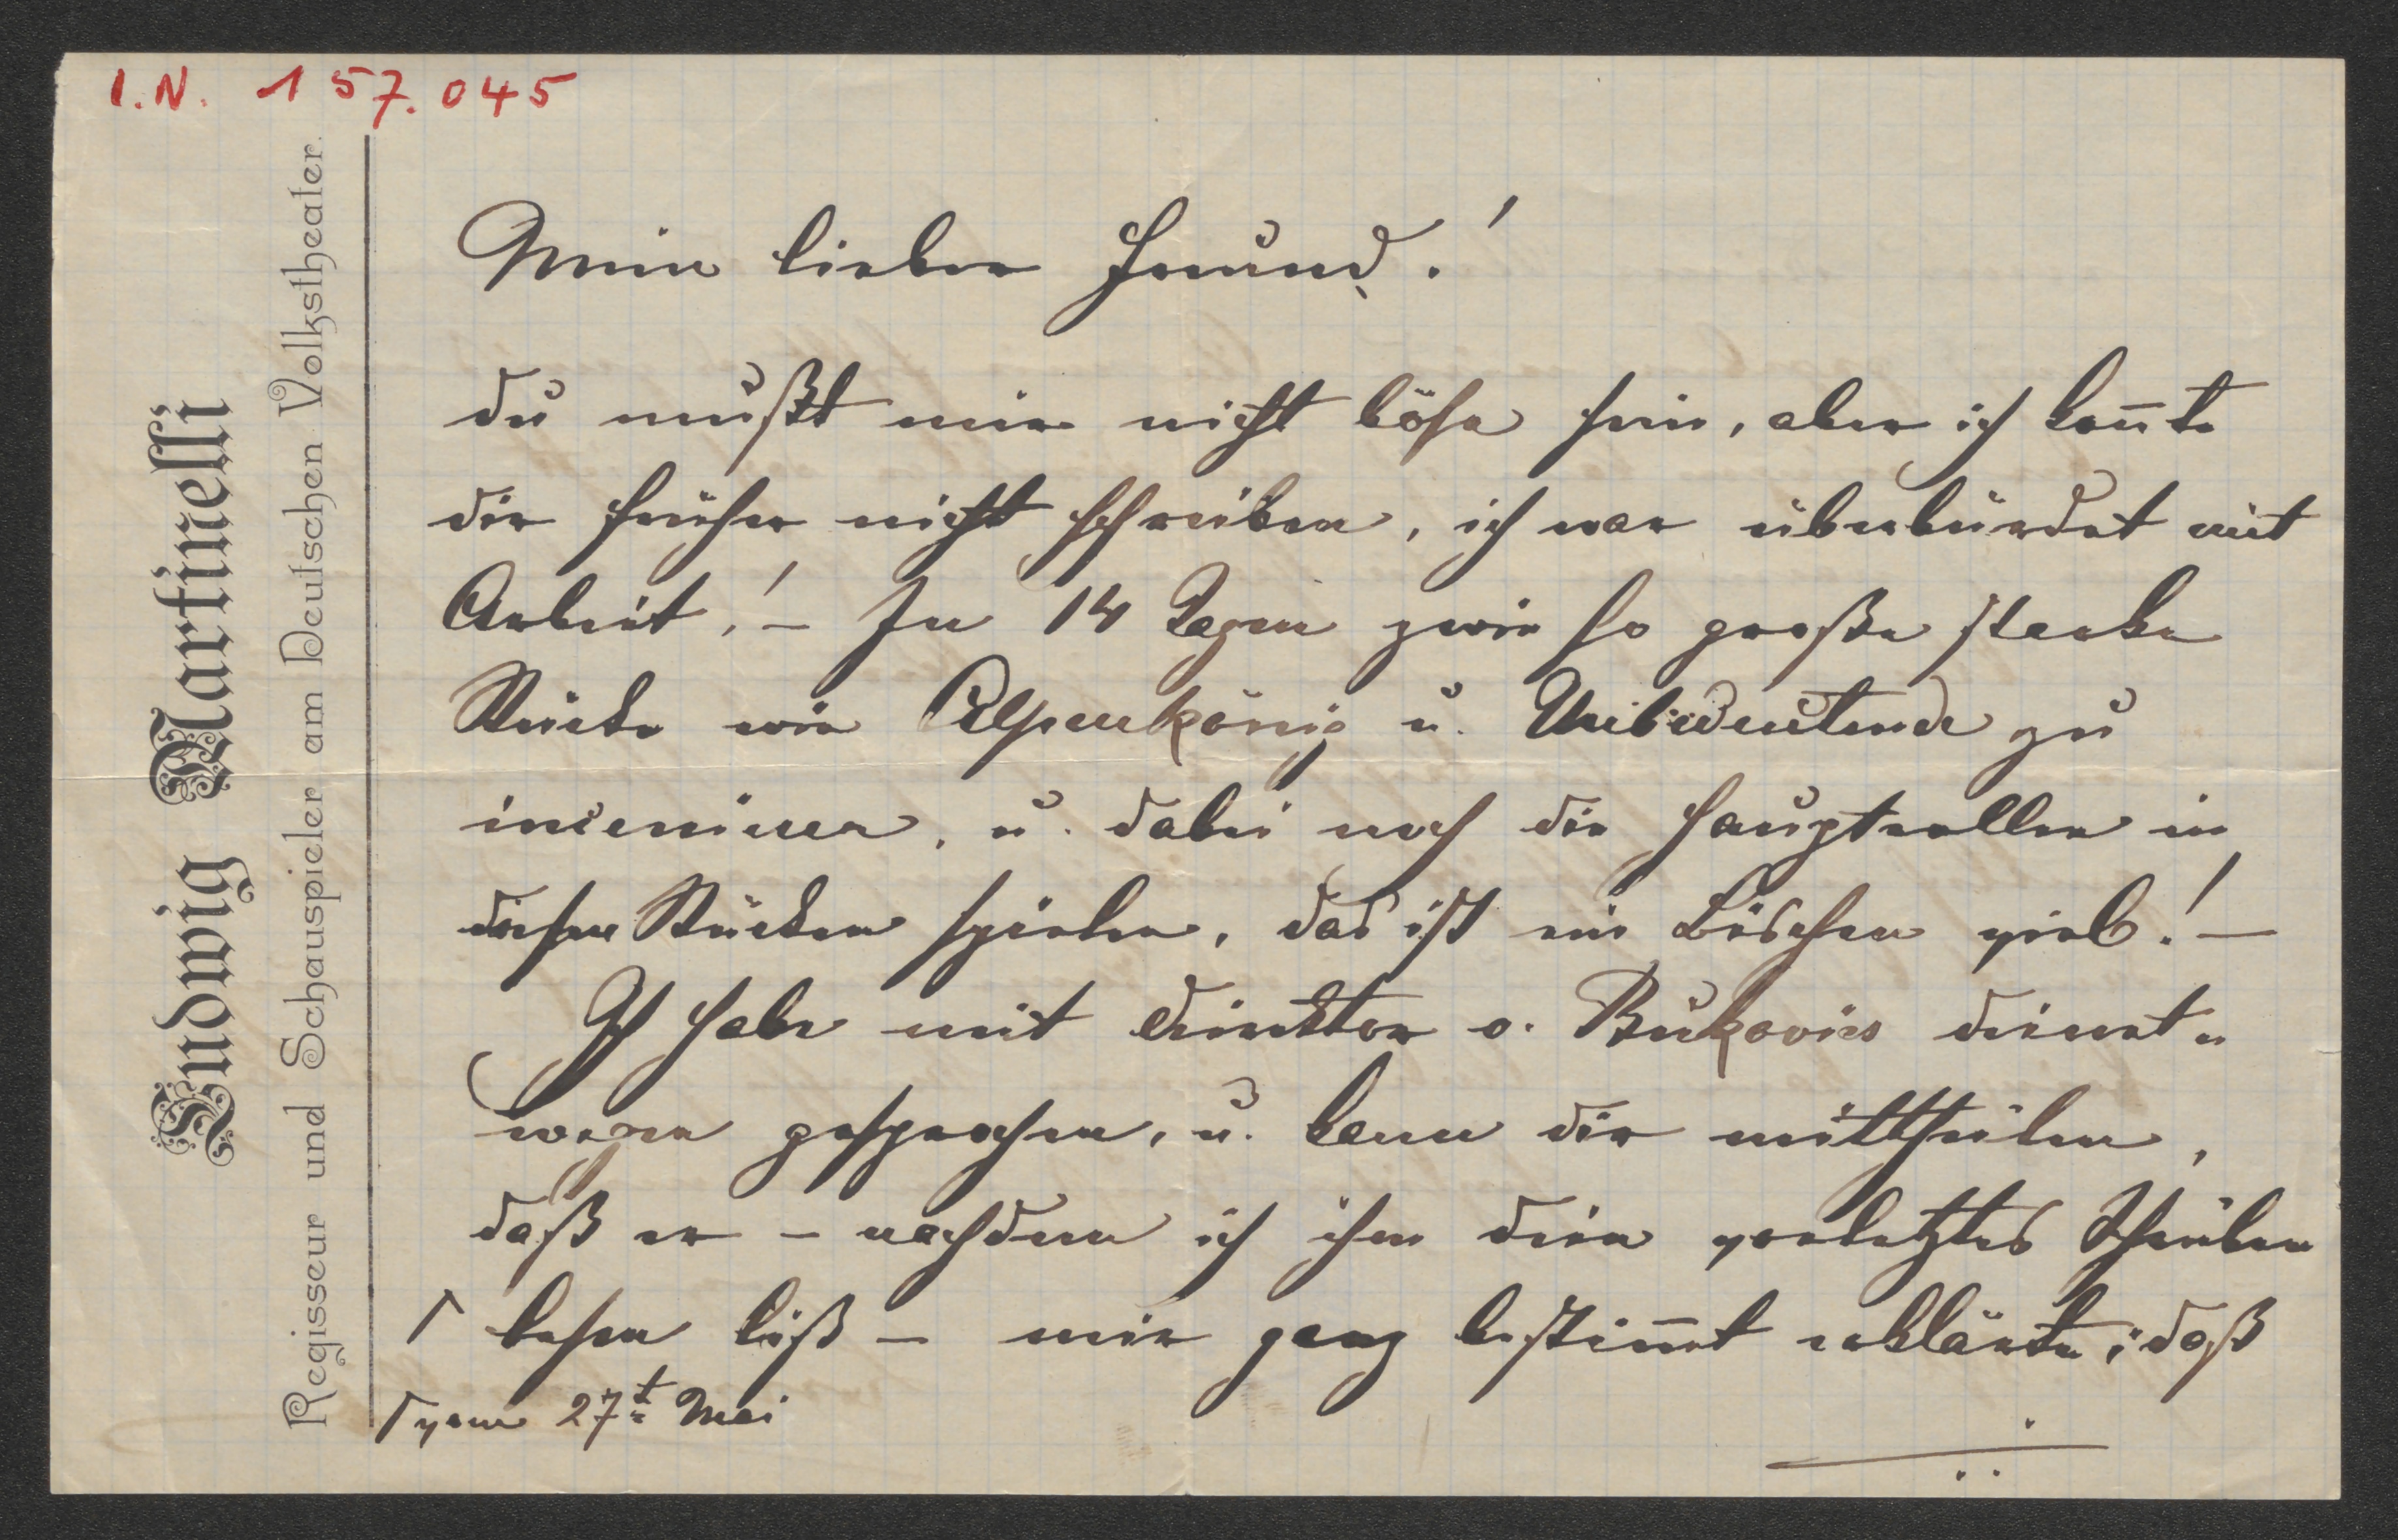 I.N. 157.045
Ludwig Martinelli
Regisseur und Schauspieler am Deutschen Volkstheater.
Mein lieber Freund!
du mußt mir nicht böse sein, aber ich kon̄te
dir früher nicht schreiben, ich war überbürdet mit
Arbeit! – In 14 Tagen zwei so große starke
Stücke wie Alpenkönig u. Unbedeutende zu
inscenieren, u. dabei noch die Hauptrollen in
diesen Stücken spielen, das ist ein Bischen viel! –
Ich habe mit Director v. Bukovics deinet-
wegen gesprochen, u. kann dir mittheilen,
daß er – nachdem ich ihm dein vorletztes Schreiben
Γ lesen ließ – mir ganz bestim̄t erklärte; daß
Γ vom 27t Mai